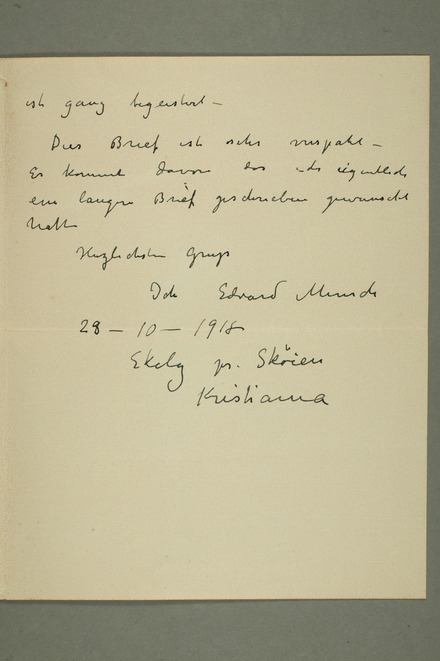 ist ganz begeistert –
Dies Brief ist sehr verspätet –
Es kommt davon das ich eigentlich
ein langer Brief geschrieben gewünscht
hatte
Herzlichsten Gruss
Ich Edvard Munch
28 – 10 – 1918
Ekely pr. Sköien
Kristiania